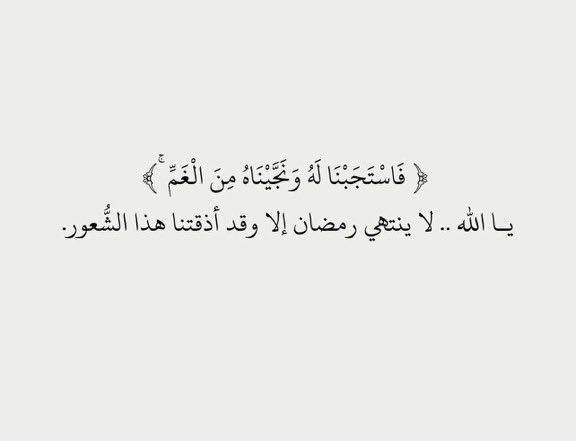 ﴿ فَاسْتَجَبْنَا لَهُ وَنَجَّيْنَاهُ مِنَ الْغَمِّ ۚ ﴾
يــا الله .. لا ينتهي رمضان إلا وقد أذقتنا هذا الشُّعور.